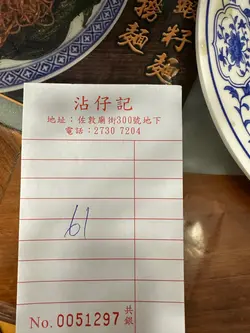 蝦籽
撈麵
麵
沾仔記
地址：佐敦廟街300號地下
電話：2730 7204
61
共銀
No. 0051297